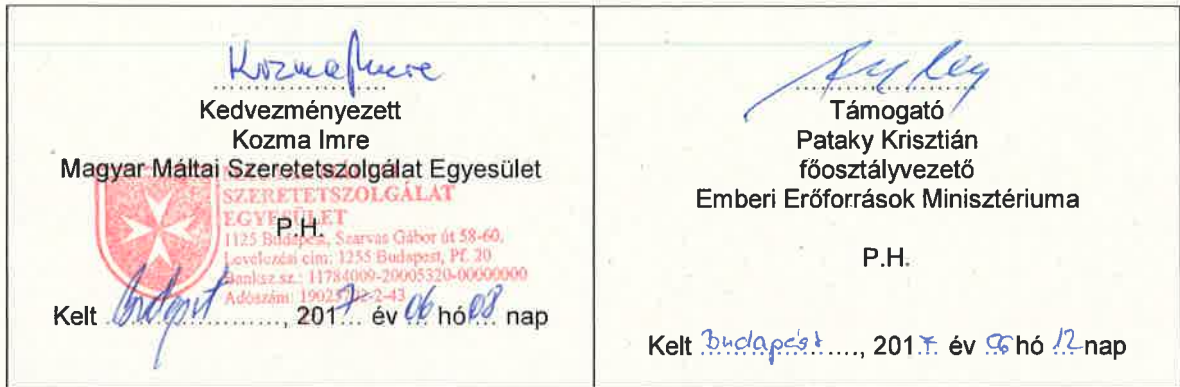 Kozma Imre
Kedvezményezett
Kozma Imre
Magyar Máltai Szeretetszolgálat Egyesület
SZERETETSZOLGÁLAT
EGYESÜLET
P.H.
1125 Budapest, Szarvas Gábor út 58-60.
Levelezési cím: 1255 Budapest, Pf. 20
Banksz.sz.: 11784009-20005320-00000000
Adószám: 19025702-2-43
Kelt Budapest, 2017 év 06 hó 08 nap
Támogató
Pataky Krisztián
főosztályvezető
Emberi Erőforrások Minisztériuma
P.H.
Kelt Budapest, 2017 év 06 hó 12 nap